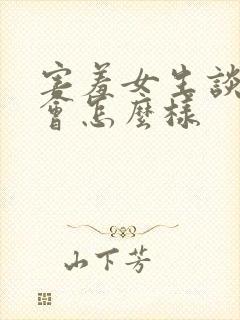 害羞女生談
會怎麼樣
山下芳